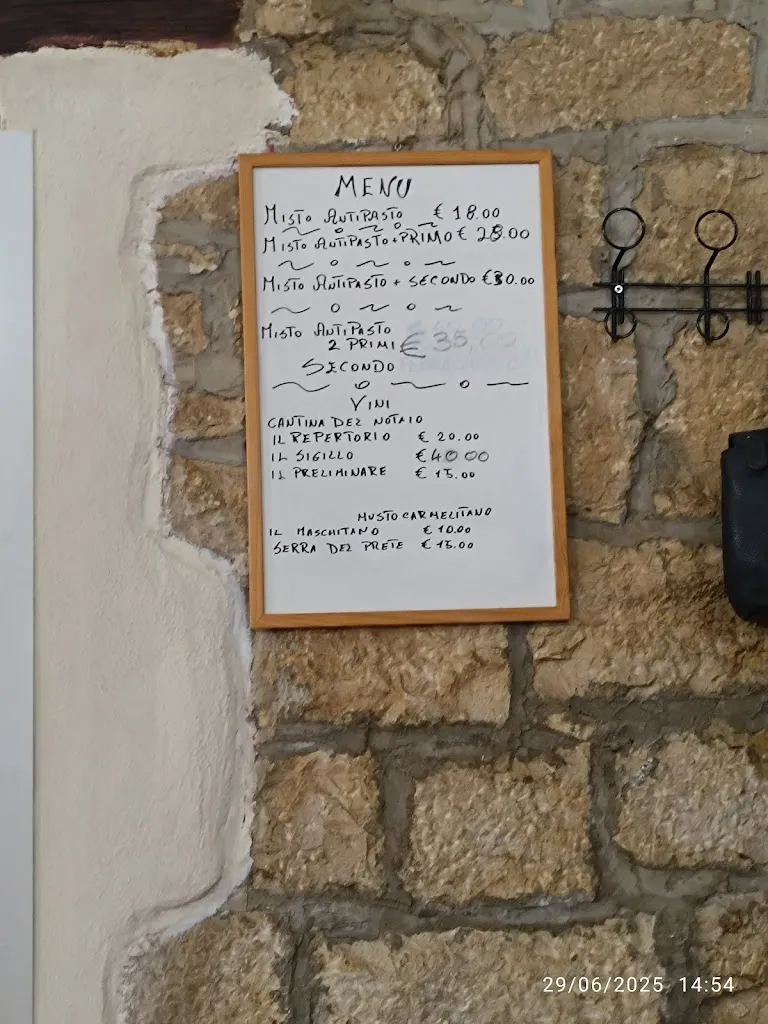 MENU
MISTO ANTIPASTO € 18.00
MISTO ANTIPASTO+PRIMO € 25.00
MISTO ANTIPASTO + SECONDO €30.00
MISTO ANTIPASTO
2 PRIMI € 35,00
SECONDO
VINI
CANTINA DEL NOTAIO
IL REPERTORIO € 20.00
IL SIGILLO €40 00
IL PRELIMINARE € 15.00
MUSTO CARMELITANO
IL MASCHITANO € 10.00
SERRA DEL PRETE € 15.00
29/06/2025 14:54